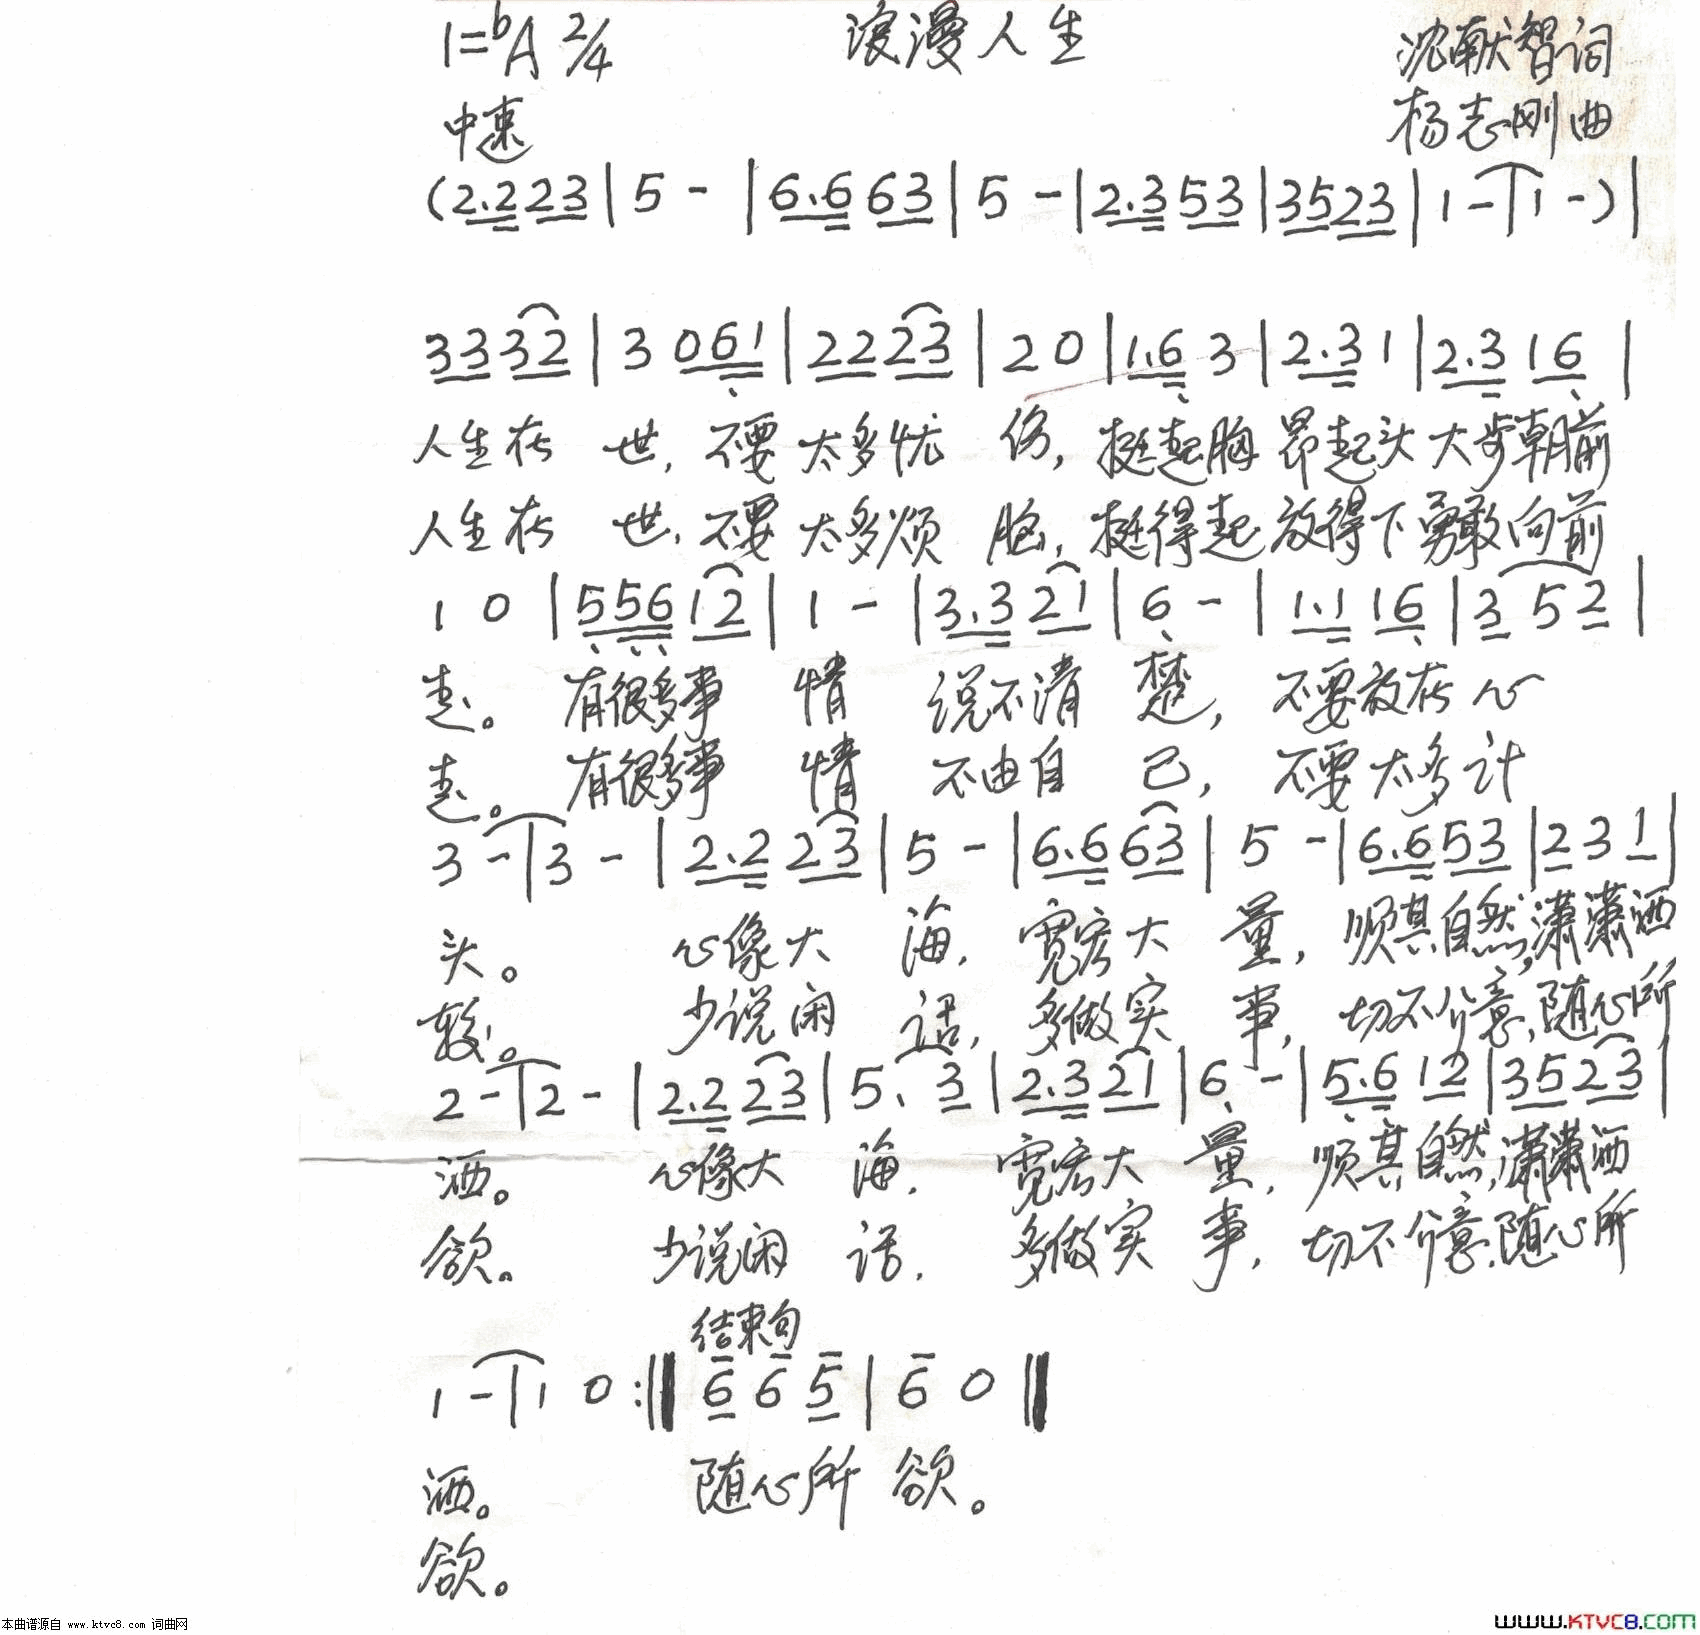 1=bA 2/4 浪漫人生 沈献智词
中速 杨志刚曲
(2.2 23 | 5 - | 6.6 63 | 5 - | 2.3 53 | 3523 | 1 - | 1 -) |
33 32 | 3 061 | 22 23 | 2 0 | 1.6 3 | 2.3 1 | 2.3 16 |
人生在 世, 不要太多忧 伤, 挺起胸 昂起头 大步朝前
人生在 世, 不要太多烦 脑, 挺得起 放得下 勇敢向前
1 0 | 556 12 | 1 - | 3.3 21 | 6 - | 1.1 16 | 3 5 2 |
走。 有很多事 情 说不清 楚, 不要放在心
走。 有很多事 情 不由自 己, 不要太多计
3 - | 3 - | 2.2 23 | 5 - | 6.6 63 | 5 - | 6.6 53 | 2 3 1 |
头。 心像大 海, 宽宏大 量, 顺其自然,潇潇洒
较。 少说闲 话, 多做实 事, 切不介意,随心所
2 - | 2 - | 2.2 23 | 5. 3 | 2.3 21 | 6 - | 5.6 12 | 35 23 |
洒。 心像大 海, 宽宏大 量, 顺其自然,潇潇洒
欲。 少说闲 话, 多做实 事, 切不介意,随心所
结束句
1 - | 1 0 :‖ 6 6 5 | 6 0 ‖
洒。 随心所 欲。
欲。
本曲谱源自 www.ktvc8.com 词曲网
www.KTVC8.COM